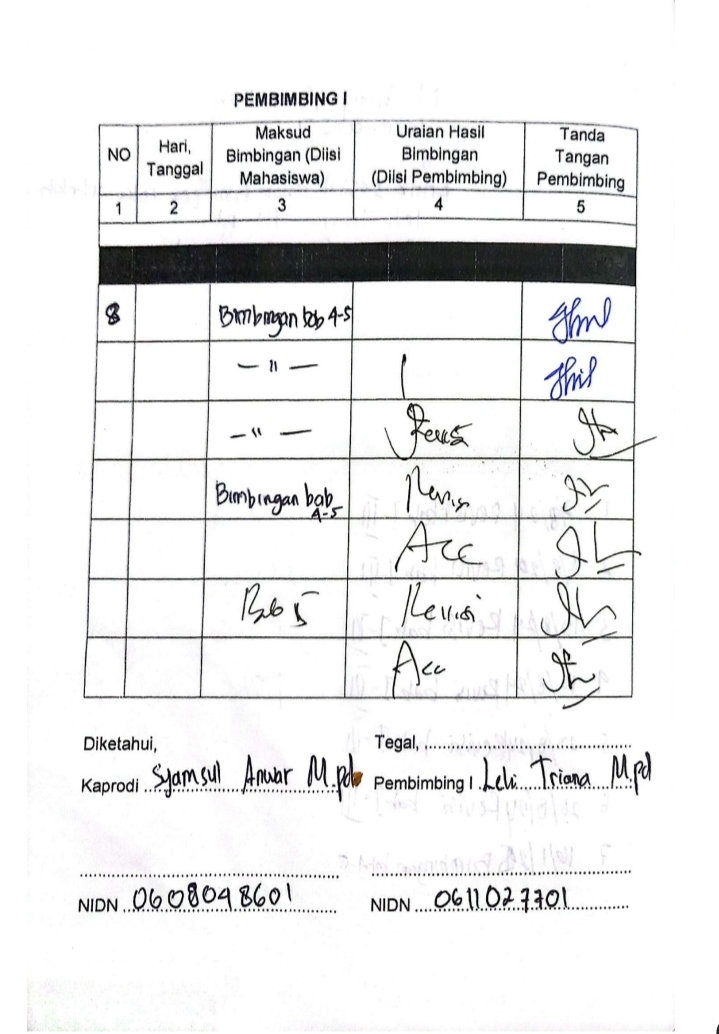 PEMBIMBING I
NO
Hari, Tanggal
Maksud Bimbingan (Diisi Mahasiswa)
Uraian Hasil Bimbingan (Diisi Pembimbing)
Tanda Tangan Pembimbing
1 2 3 4 5
8 Bimbingan bab 4-5
— " —
— " — Revisi
Bimbingan bab 4-5 Revisi
Acc
Bab 5 Revisi
Acc
Diketahui, Tegal,
Kaprodi Syamsul Anwar M.pd Pembimbing I Leli Triana M.pd
NIDN 0608048601 NIDN 0611027701